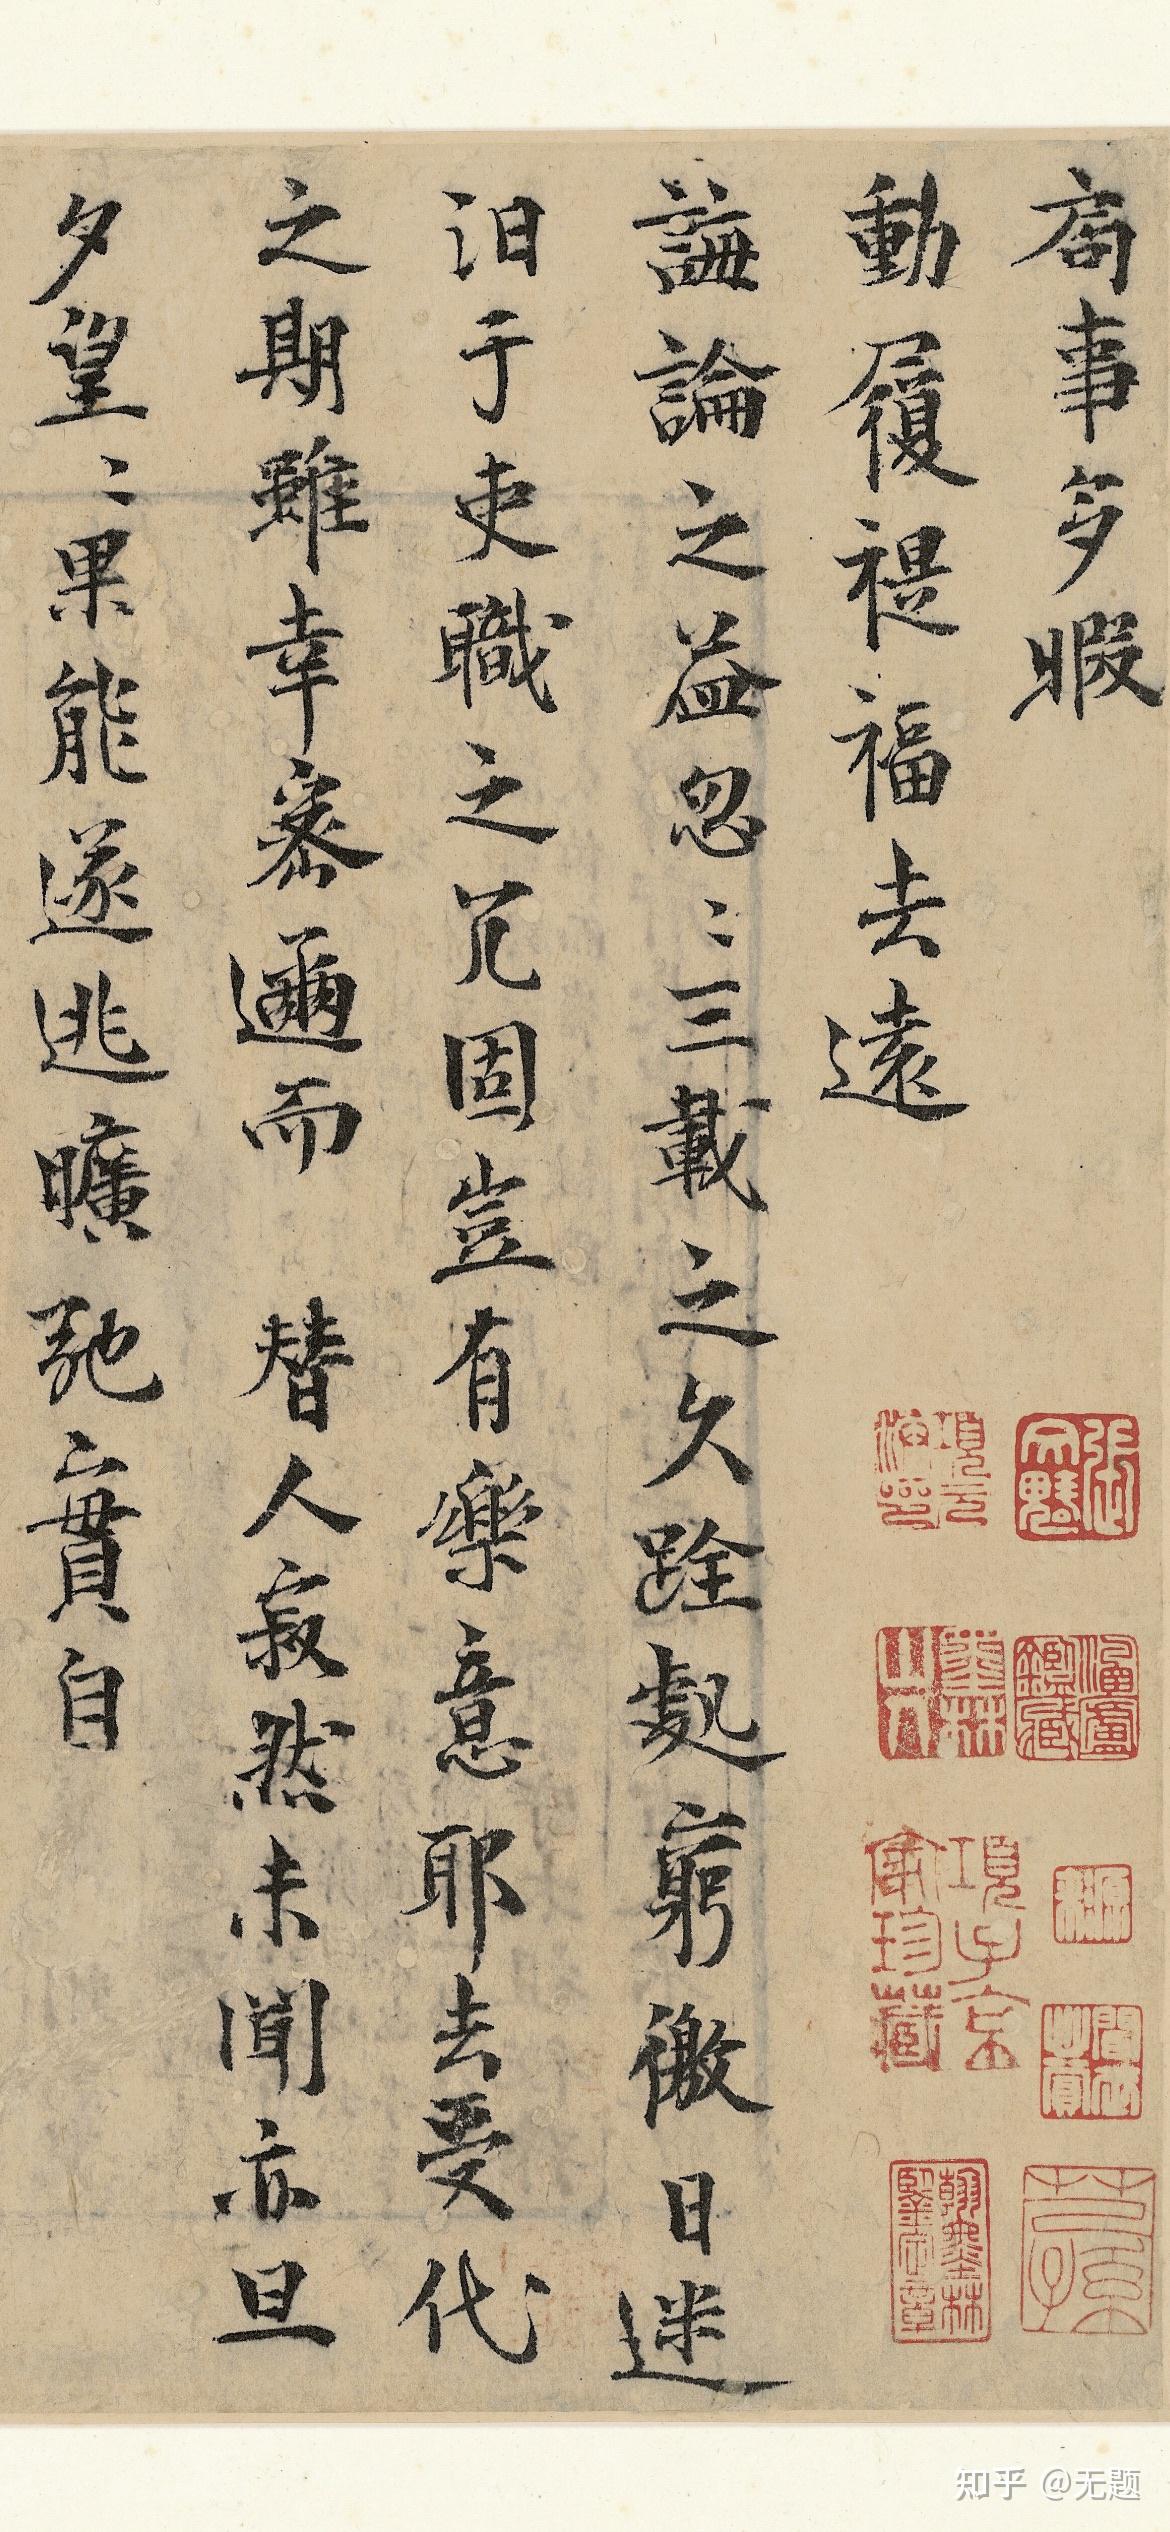 齋事多暇
動履禔福去遠
誨論之益忽〻三載之久跧處窮徼日迷
汨于吏職之冗固豈有樂意耶去受代
之期雖幸密邇而　替人寂然未聞亦旦
夕望〻果能遂逃曠弛實自
項子京家珍藏
知乎 @无题